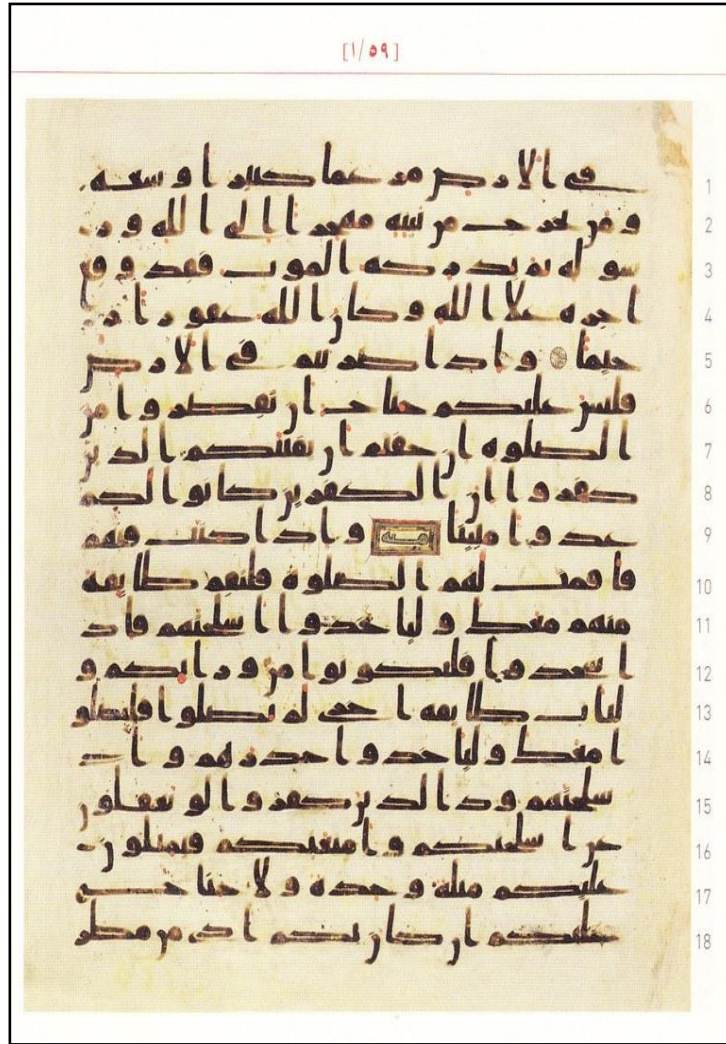 [١/٥٩]
في الارض مرغما كثيرا وسعة 1
ومن يخرج من بيته مهجرا الى الله ور 2
سوله ثم يدركه الموت فقد وقع 3
اجره على الله وكان الله غفورا ر 4
حيما واذا ضربتم في الارض 5
فليس عليكم جناح ان تقصروا من 6
الصلوة ان خفتم ان يفتنكم الذين 7
كفروا ان الكفرين كانوا لكم 8
عدوا مبينا واذا كنت فيهم 9
فاقمت لهم الصلوة فلتقم طايفة 10
منهم معك ولياخذوا اسلحتهم فاذ 11
ا سجدوا فليكونوا من ورايكم و 12
لتات طايفة اخرى لم يصلوا فليصلو 13
ا معك ولياخذوا حذرهم وا 14
سلحتهم ود الذين كفروا لو تغفلون 15
عن اسلحتكم وامتعتكم فيميلون 16
عليكم ميلة وحدة ولا جناح 17
عليكم ان كان بكم اذى من مطر 18